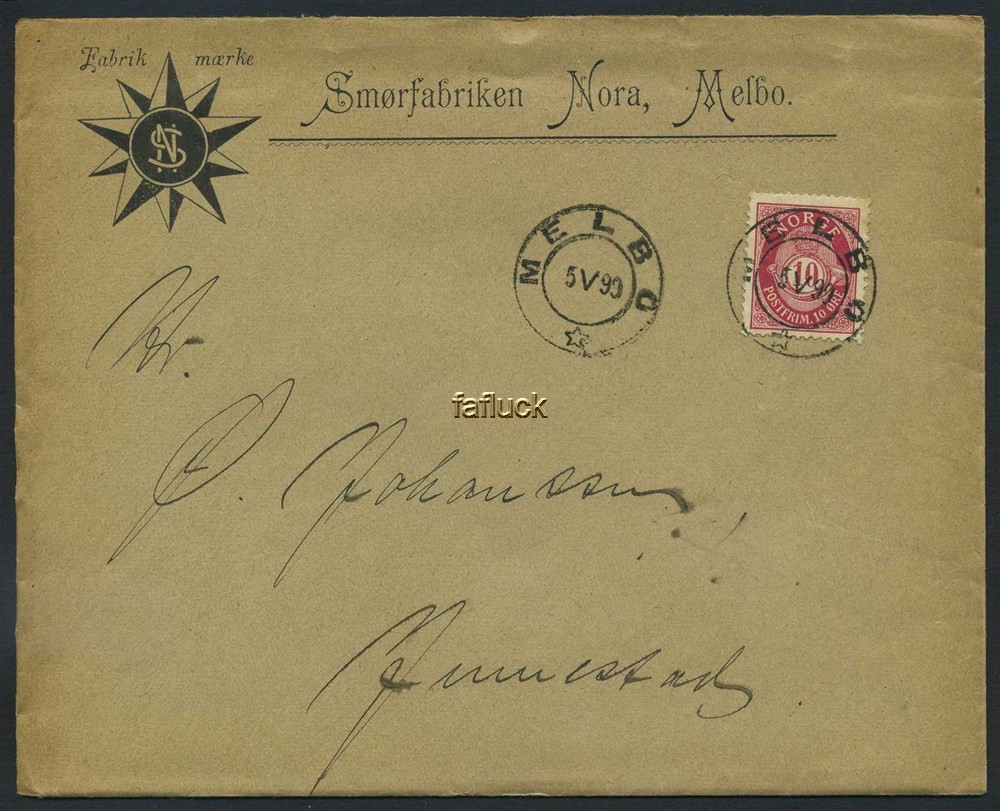 Fabrik mærke
SN
Smørfabriken Nora, Melbo.
MELBO
5 V 99
NORGE
10
POSTFRIM. 10 ØRE
MELBO
5 V 99
Hr.
fafluck
P. Johanssen
Jennestad